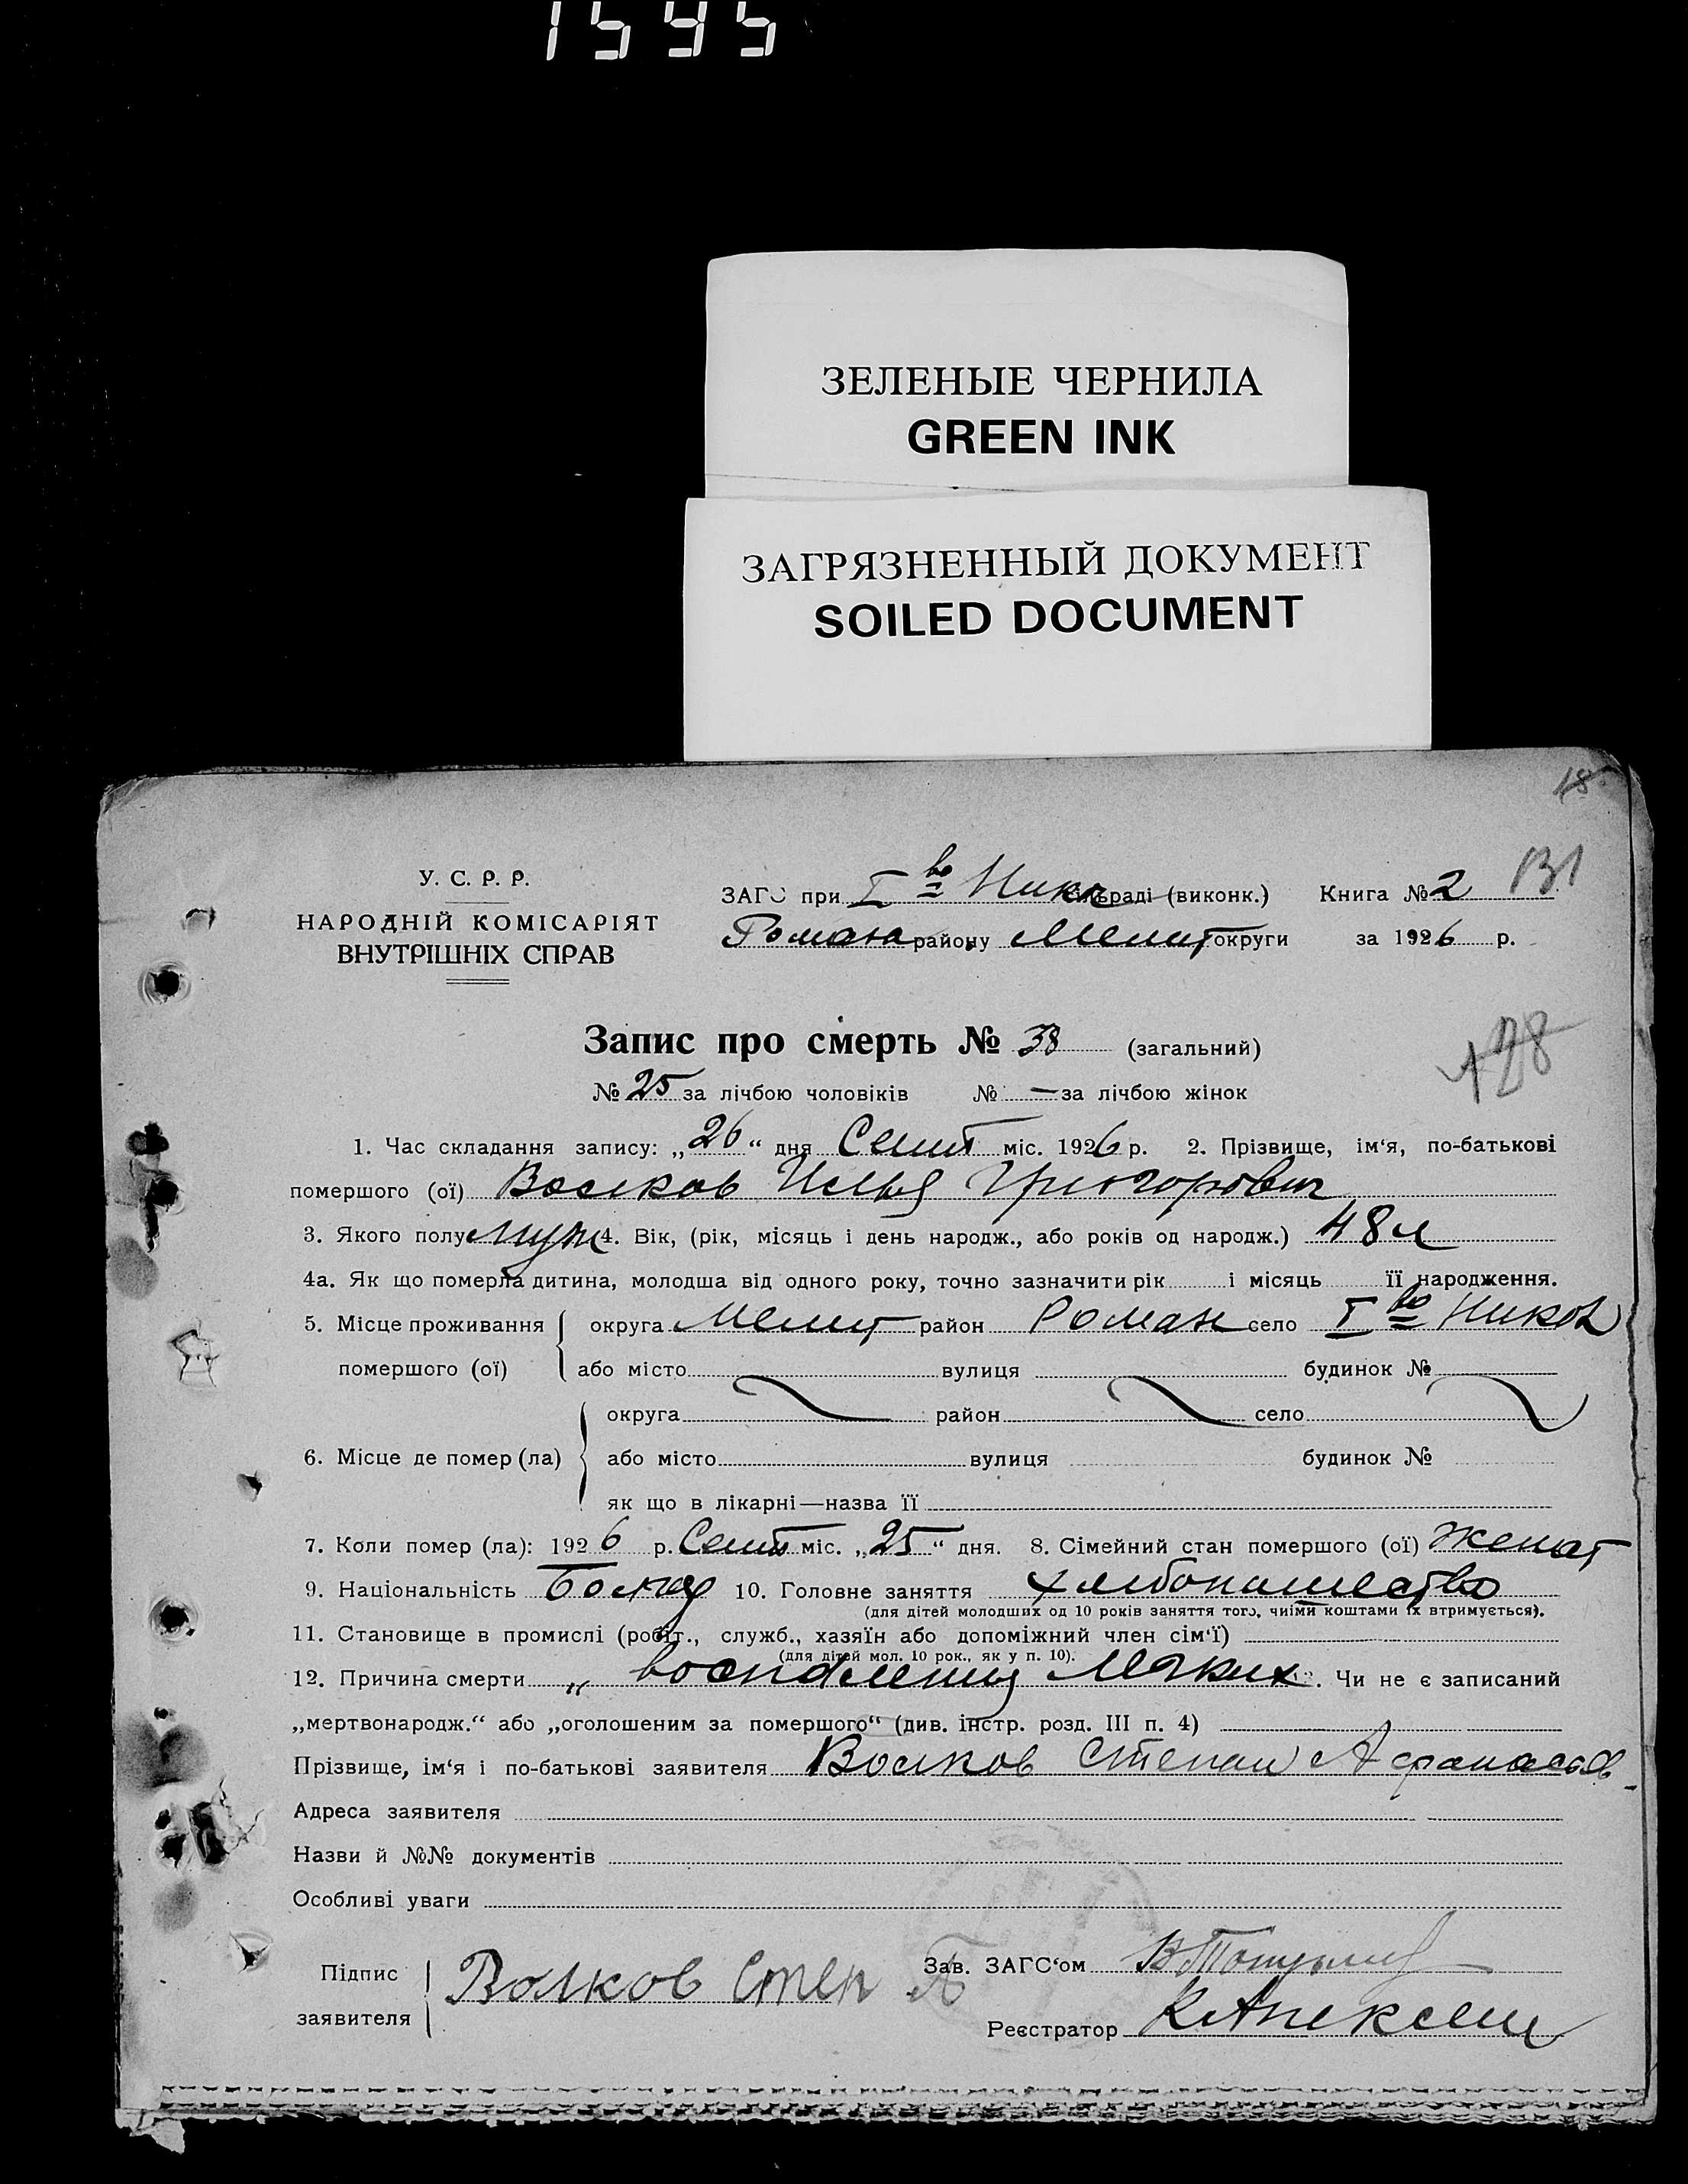 1595
ЗЕЛЕНЫЕ ЧЕРНИЛА
GREEN INK
ЗАГРЯЗНЕННЫЙ ДОКУМЕНТ
SOILED DOCUMENT
18
У. С. Р. Р.
НАРОДНІЙ КОМІСАРІЯТ
ВНУТРІШНІХ СПРАВ
ЗАГС при I во Никол сільраді (виконк.) Книга № 2
Романов району Мелит округи за 1926 р.
128
Запис про смерть № 38 (загальний)
№ 25 за лічбою чоловіків № — за лічбою жінок
1. Час складання запису: „26“ дня Сент міс. 1926 р. 2. Прізвище, ім‘я, по-батькові
помершого (ої) Волков Илья Григорович
3. Якого полу муж 4. Вік, (рік, місяць і день народж., або років од народж.) 48 л
4а. Як що померла дитина, молодша від одного року, точно зазначити рік і місяць її народження.
5. Місце проживання помершого (ої) округа Мелит район Роман село I во Никол
або місто вулиця будинок №
6. Місце де помер (ла) округа район село
або місто вулиця будинок №
як що в лікарні—назва її
7. Коли помер (ла): 1926 р. Сент міс. „25“ дня. 8. Сімейний стан помершого (ої) женат
9. Національність Болгар 10. Головне заняття хлебопашество
(для дітей молодших од 10 років заняття того, чиїми коштами їх втримується).
11. Становище в промислі (робіт., служб., хазяїн або допоміжний член сім‘ї)
(для дітей мол. 10 рок., як у п. 10).
12. Причина смерти „ воспаление Легких 13. Чи не є записаний
„мертвонародж.“ або „оголошеним за помершого“ (див. інстр. розд. III п. 4)
Прізвище, ім‘я і по-батькові заявителя Волков Степан Афанасьев
Адреса заявителя
Назви й №№ документів
Особливі уваги
Підпис заявителя Волков Степ А
Зав. ЗАГС‘ом
Реєстратор